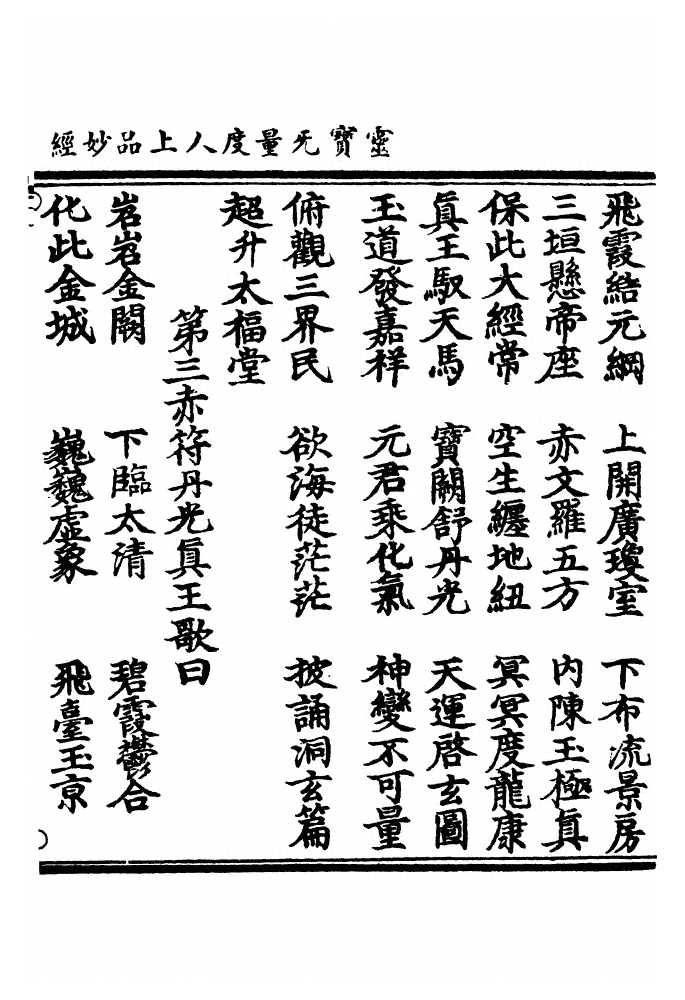 靈寶旡量度人上品妙經
飛霞結元綱 上開廣瓊室 下布流景房
三垣懸帝座 赤文羅五方 內陳玉極真
保此大經常 空生纏地紐 冥冥度龍康
真王馭天馬 寶闕舒丹光 天運啓玄圖
玉道發嘉祥 元君乘化氣 神變不可量
俯觀三界民 欲海徒茫茫 披誦洞玄篇
超升太福堂
第三赤符丹光真王歌曰
岧岧金闕 下臨太清 碧霞鬱合
化此金城 巍巍虛象 飛臺玉京